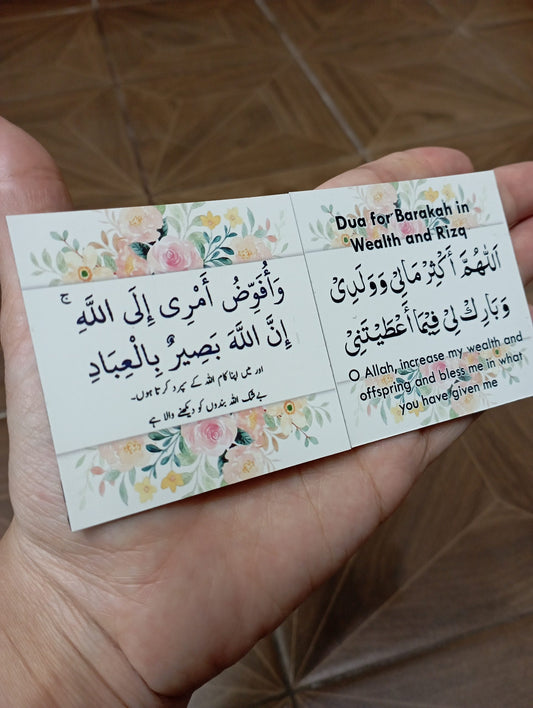 وَأُفَوِّضُ أَمْرِى إِلَى اللَّهِ ۚ
إِنَّ اللَّهَ بَصِيرٌ بِالْعِبَادِ
اور میں اپنا کام اللہ کے سپرد کرتا ہوں۔
بے شک اللہ بندوں کو دیکھنے والا ہے
Dua for Barakah in
Wealth and Rizq
اَللّٰهُمَّ أَكْثِرْ مَالِيْ وَوَلَدِيْ
وَبَارِكْ لِيْ فِيْمَا أَعْطَيْتَنِيْ
O Allah, increase my wealth and
offspring and bless me in what
you have given me